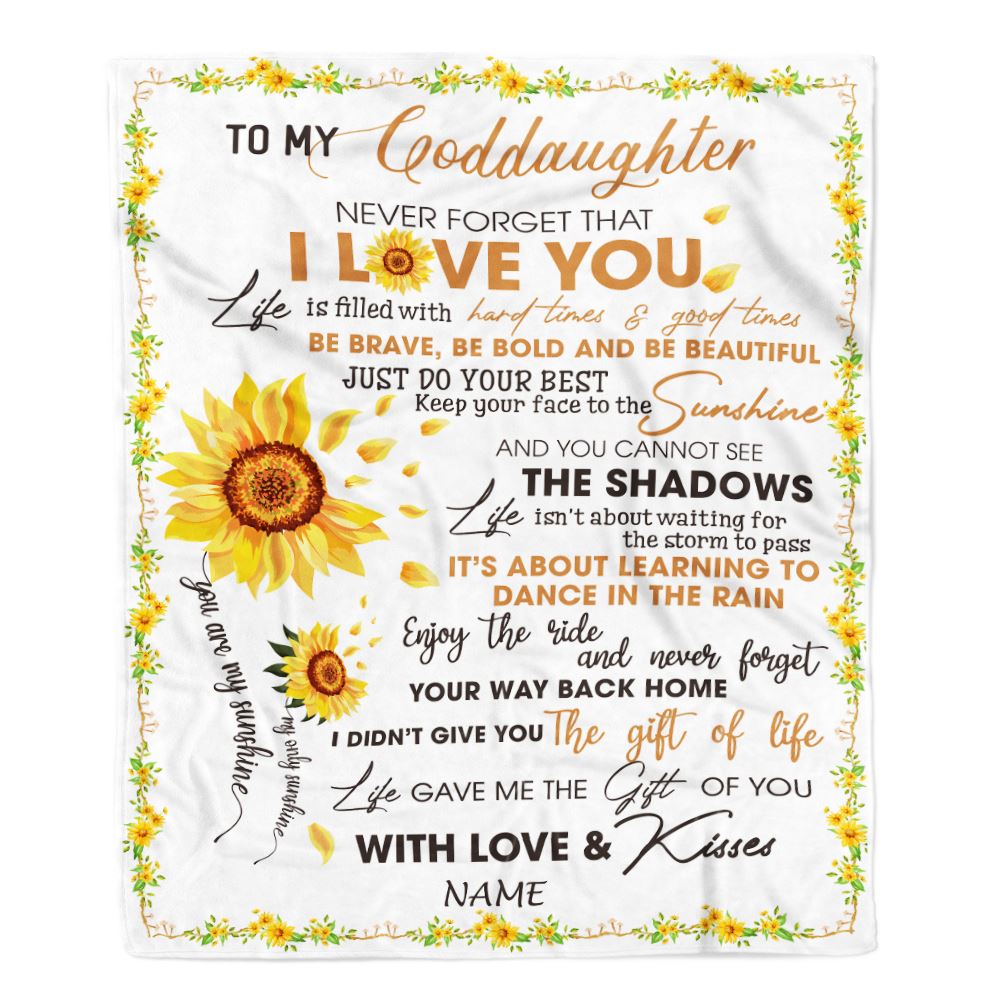 TO MY Goddaughter
NEVER FORGET THAT
I LOVE YOU
Life is filled with hard times & good times
BE BRAVE, BE BOLD AND BE BEAUTIFUL
JUST DO YOUR BEST
Keep your face to the Sunshine
AND YOU CANNOT SEE
THE SHADOWS
Life isn't about waiting for
the storm to pass
IT'S ABOUT LEARNING TO
DANCE IN THE RAIN
Enjoy the ride
and never forget
YOUR WAY BACK HOME
I DIDN'T GIVE YOU The gift of life
Life GAVE ME THE Gift OF YOU
WITH LOVE & Kisses
NAME
you are my sunshine
my only sunshine